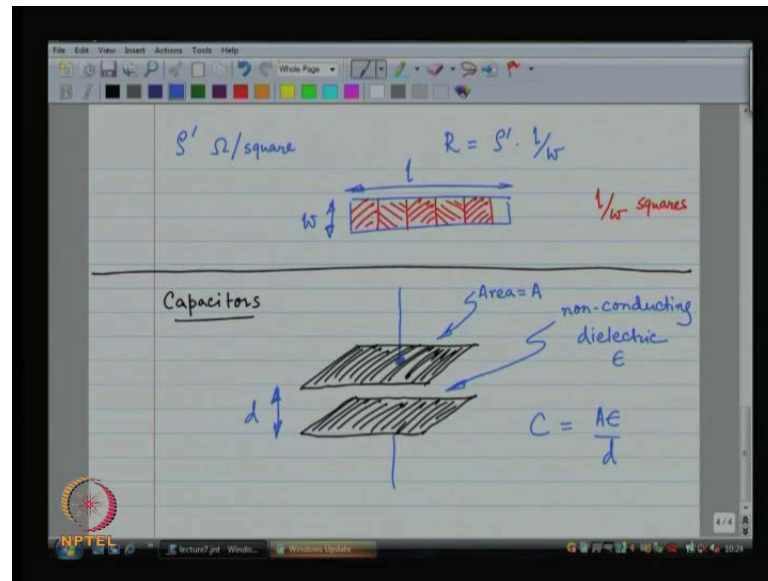 File Edit View Insert Actions Tools Help
Whole Page
B I
ρ' Ω/square
R = ρ' · l/w
l
w
l/w squares
Capacitors
Area = A
non-conducting
dielectric
ϵ
d
C = Aϵ/d
4/4
NPTEL
lecture7.jnt - Windo...
Windows Update
10:24